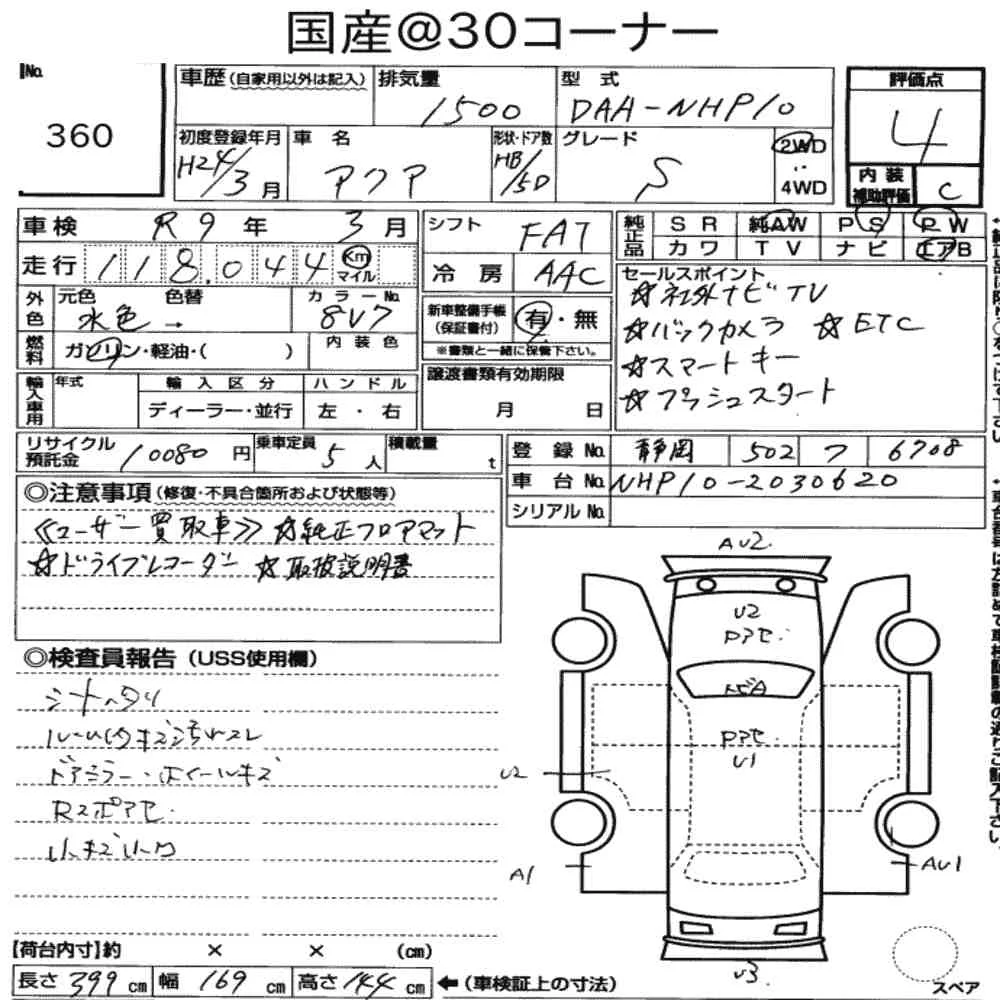 国産@30コーナー
No.
360
車歴(自家用以外は記入)
排気量
1500
型 式
DAA-NHP10
評価点
4
内装
補助評価
C
初度登録年月
H24/3月
車 名
アクア
形状・ドア数
HB/5D
グレード
S
2WD
:
4WD
車検 R9年 3月
走行 118,044 Km
マイル
シフト FAT
冷房 AAC
純正品 SR 純AW PS PW
カワ TV ナビ エアB
外色
元色 色替
水色→
カラーNo.
8V7
燃料 ガソリン・軽油・( )
内装色
新車整備手帳
(保証書付)
有・無
※書類と一緒に保管下さい。
セールスポイント
☆社外ナビTV
☆バックカメラ ☆ETC
☆スマートキー
☆プッシュスタート
輸入車用
年式
輸入区分
ハンドル
ディーラー・並行
左・右
譲渡書類有効期限
月 日
リサイクル
預託金
10080円
乗車定員
5人
積載量
t
登録No. 静岡 502 フ 6708
車台No. NHP10-2030620
シリアルNo.
◎注意事項(修復・不具合箇所および状態等)
《ユーザー買取車》 ☆純正フロアマット
☆ドライブレコーダー ☆取扱説明書
◎検査員報告(USS使用欄)
シートヘタリ
ルーム内キズ汚れスレ
ドアミラー・ホイールキズ
Rスポアセ.
小キズ小凹
AU2.
U2
Pアセ.
トビA
Pアセ.
U1
U2
A1
AU1
U3
スペア
【荷台内寸】約 × × (cm)
長さ 399 cm 幅 169 cm 高さ 144 cm ←(車検証上の寸法)